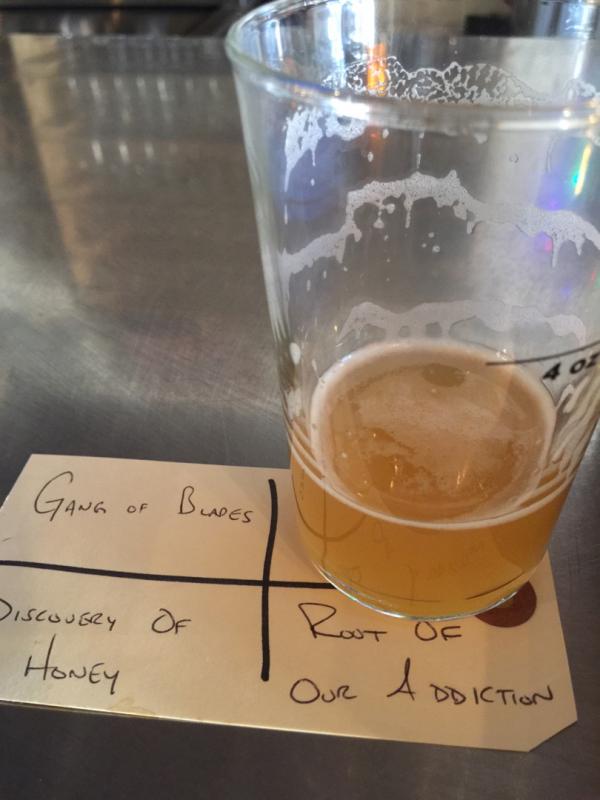 4 oz
GANG OF BLADES
DISCOVERY OF
HONEY
ROOT OF
OUR ADDICTION